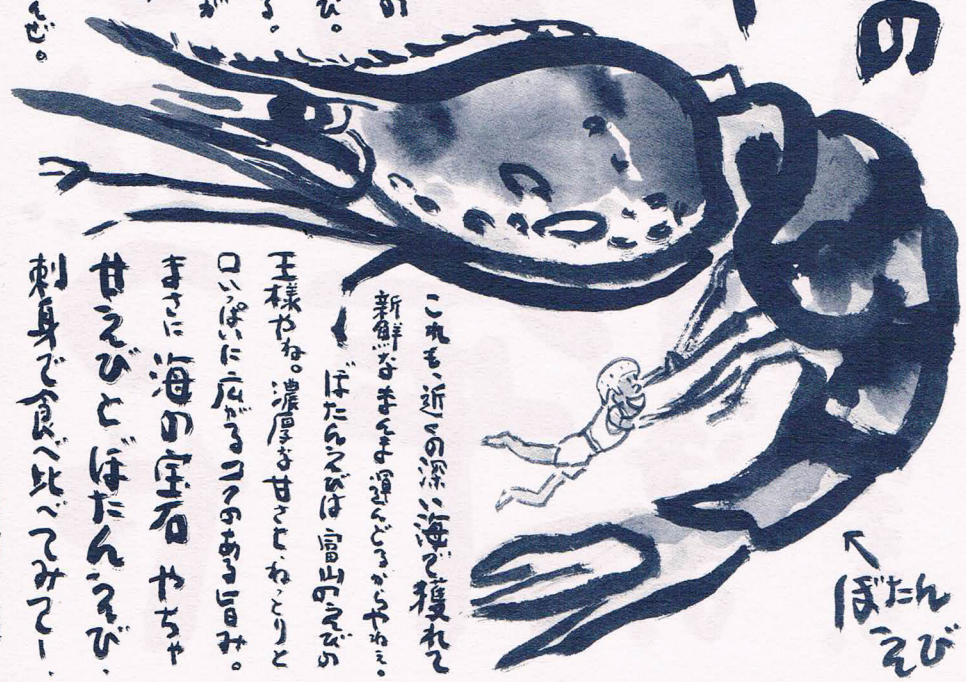 の
が
る。
び。
の
んぜ。
これも、近くの深い海で獲れて
新鮮なまんま運んどるからやねぇ。
ぼたんえびは富山のえびの
王様やね。濃厚な甘さと、ねっとりと
口いっぱいに広がるコクのある旨み。
まさに海の宝石やちゃ
甘えびとぼたんえび、
刺身で食べ比べてみてー、
ぼたん
えび